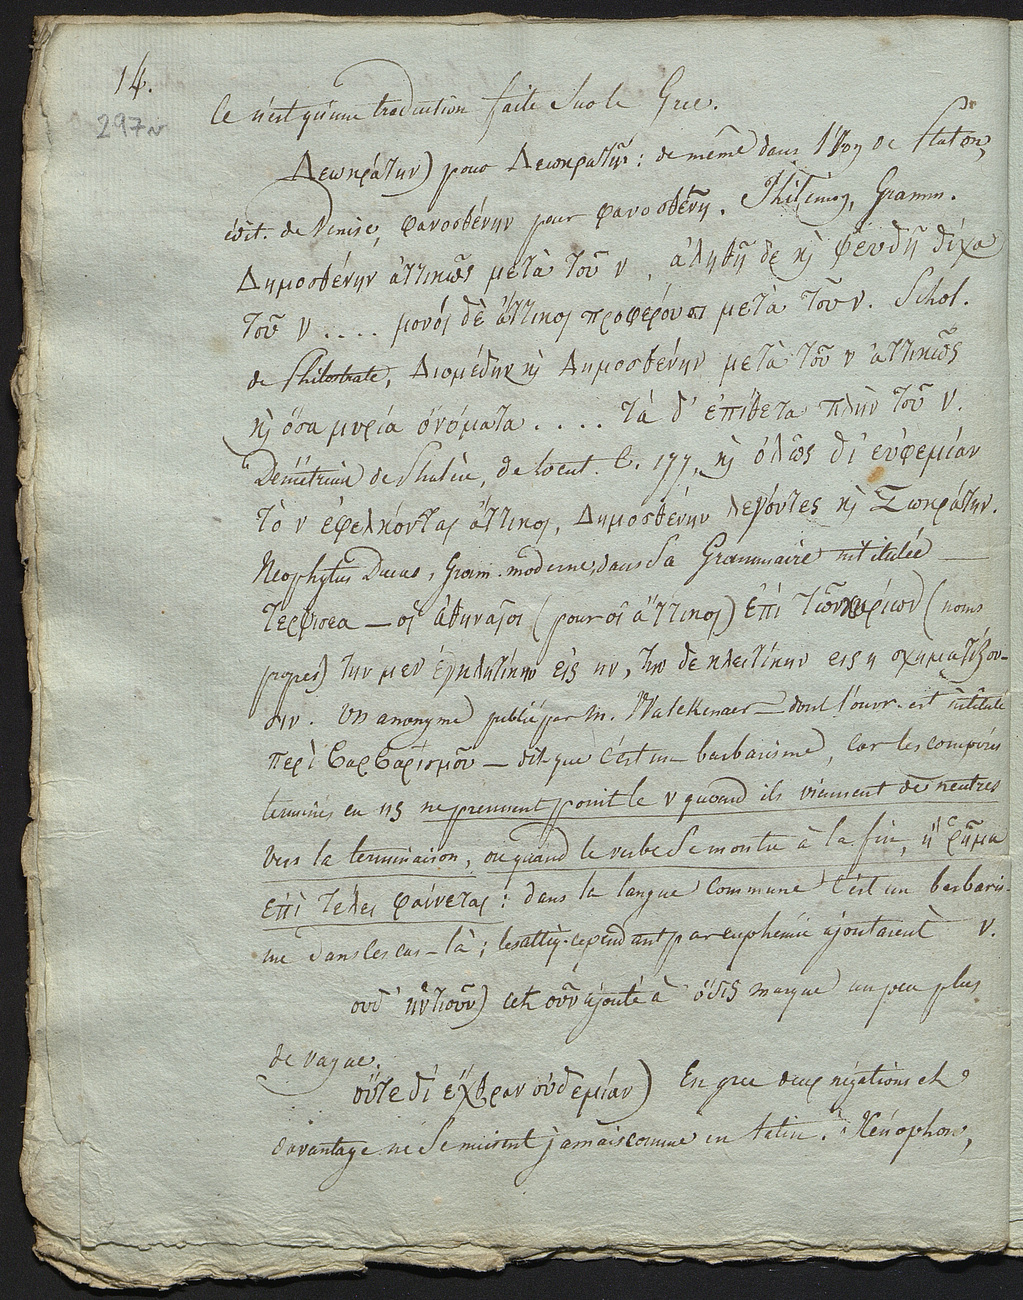 14.
297v
Ce n'est qu'une traduction faite sur le Grec.
Λεωκράτην) pour Λεωκρατῆ: de même dans l'Ion de Platon,
édit. de Venise, φανοσθένην pour φανοσθένη. Philémon, Gramm.
Δημοσθένην ἀττικῶς μετὰ τοῦ ν, ἀληθῆ δε κὴ ψευδῆ δίχα
τοῦ ν .... μονοι δὲ ἄττικοι προφέρουσι μετὰ τοῦ ν. Schol.
de Philostrate, Διομέδην κὴ Δημοσθένην μετὰ τοῦ ν ἀττικῶς
κὴ ὅσα μυρία ὀνόματα .... τὰ δ' ἐπίθετα πλὴν τοῦ ν.
Démétrius de Phalère, de locut. C. 177, κὴ ὁλῶς δι εὐφεμίαν
τὸ ν ἐφελκονται ἄττικοι, Δημοσθένην λεγόντες κὴ Σωκράτην.
Neophytus Ducas, Gram. moderne, dans sa Grammaire intitulée
Τερψιθεα — οἱ ἀθηναῖοι (pour οἱ ἄττικοι) ἐπὶ τῶν κυρίων (noms
propres) την μεν ἐγκλητικὴν εἰς ην, την δε κλειτίκην εις η σχηματίζου-
σιν. Un anonyme publié par M. Walckenaer — dont l'ouvr. est intitulé
περὶ βαρβαρισμοῦ — dit que c'est un barbarisme, car les composés
terminés en ης ne prennent point le ν quand ils viennent de neutres
vers la terminaison, ou quand le verbe se montre à la fin, ἢ ῥῆμα
ἐπὶ τέλει φαίνεται: dans la langue commune c'est un barbaris-
me dans les cas-là; les attiq. cependant par euphémie ajoutaient ν.
οὐδ' ἡντιοῦν) cet οὖν ajouté à ὅστις marque un peu plus
de vague.
οὔτε δι ἔχθραν οὐδεμίαν) En grec deux négations et
davantage ne se nuisent jamais comme en Latin. Xénophon,